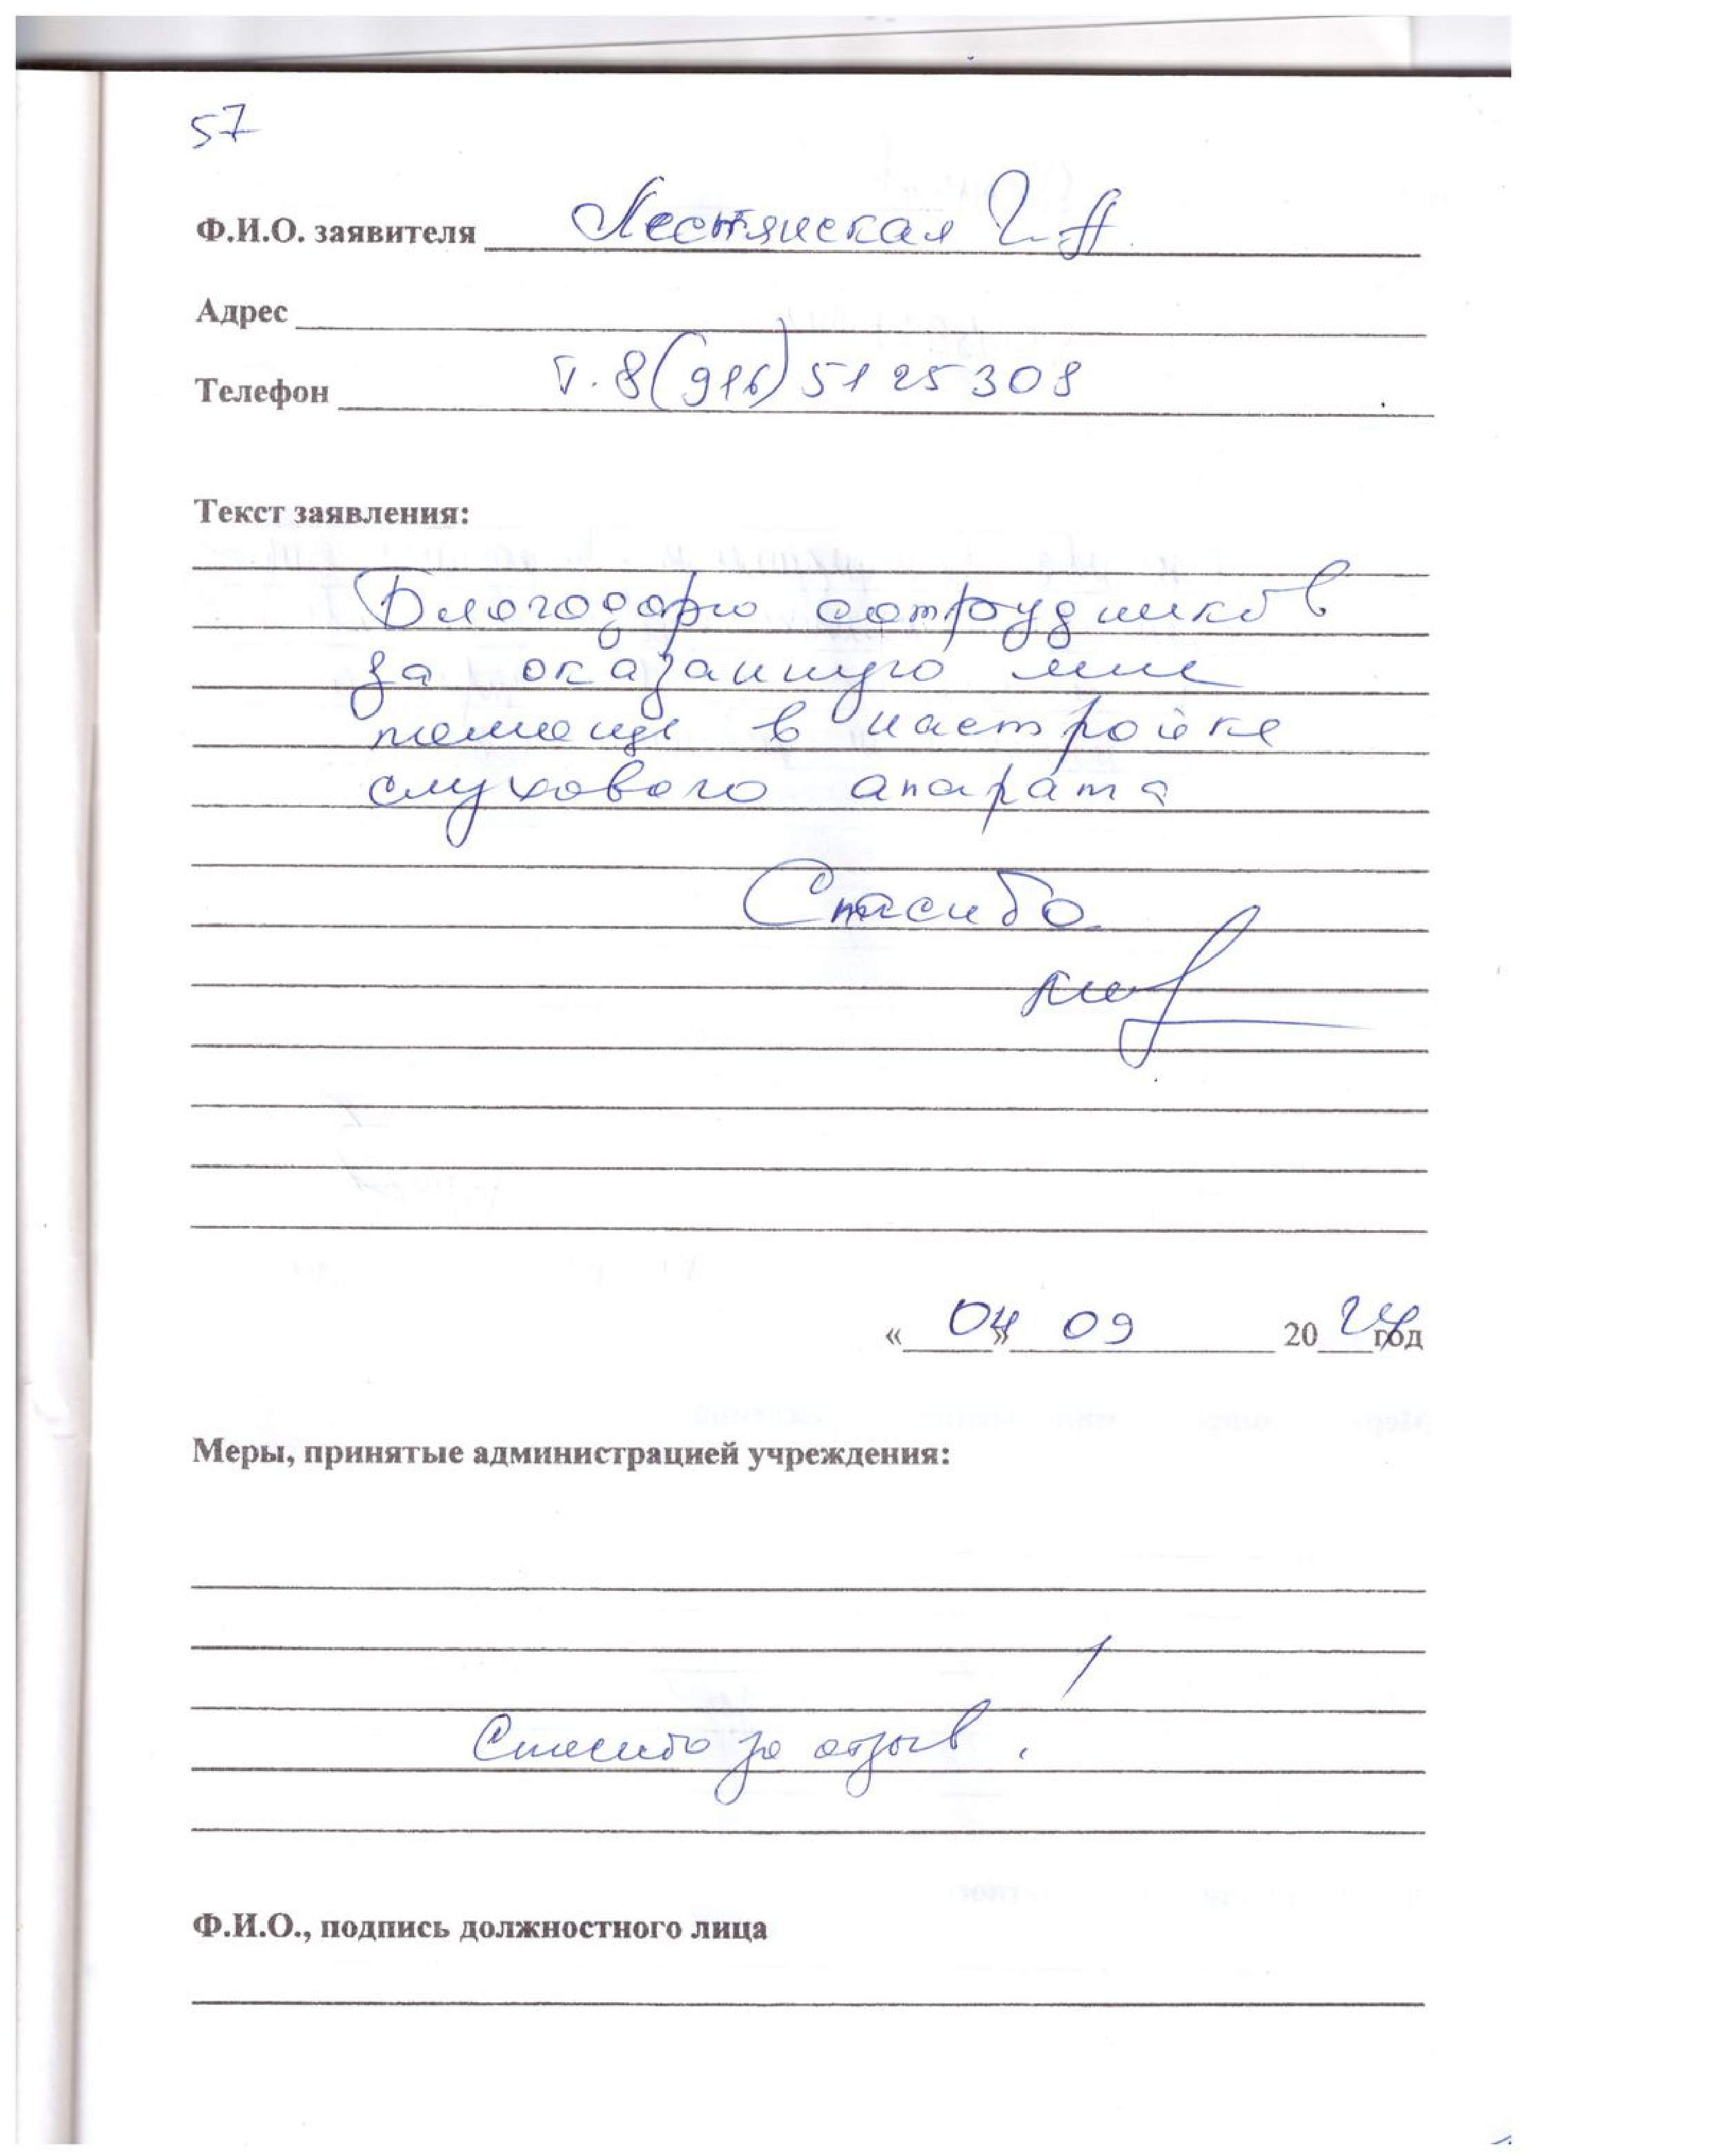 57
Ф.И.О. заявителя Г. А.
Адрес
Телефон т. 8(916) 51 25 308
Текст заявления:
Благодарю сотрудников
за оказанную мне
помощь в настройке
слухового апарата
Спасибо
«04» 09 2024 год
Меры, принятые администрацией учреждения:
Спасибо за отзыв!
Ф.И.О., подпись должностного лица